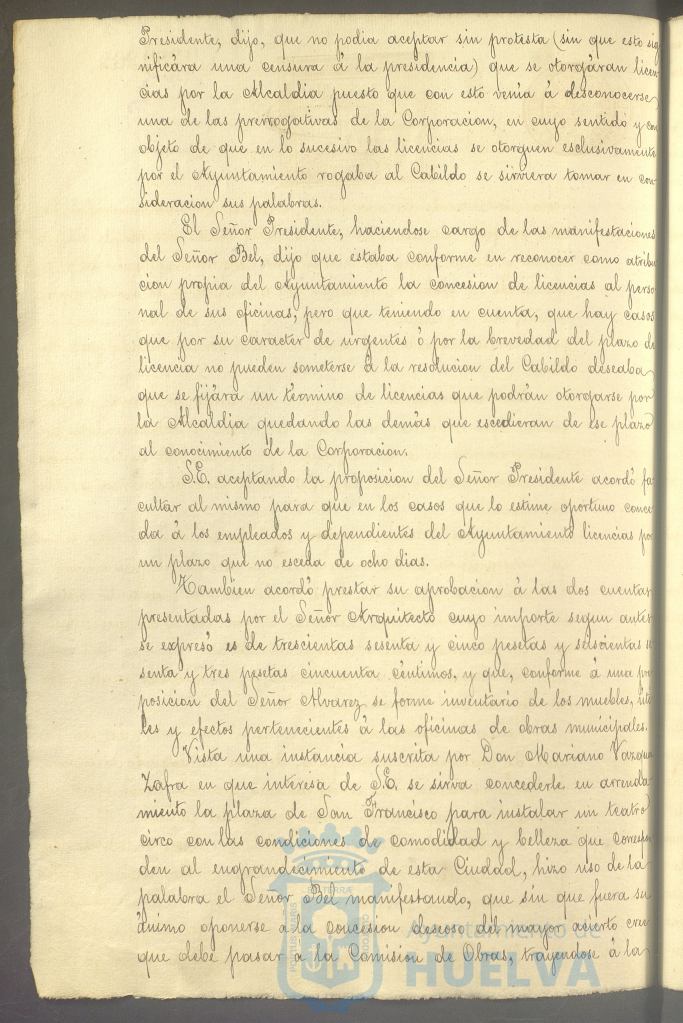 Presidente, dijo, que no podia aceptar sin protesta (sin que esto sig
nificára una censura á la presidencia) que se otorgáran licen
cias por la Alcaldia puesto que con esto venia á desconocerse
una de las prerrogativas de la Corporacion, en cuyo sentido y con
objeto de que en lo sucesivo las licencias se otorguen esclusivamente
por el Ayuntamiento rogaba al Cabildo se sirviera tomar en con
sideracion sus palabras.
El Señor Presidente, haciendose cargo de las manifestaciones
del Señor Bel, dijo que estaba conforme en reconocer como atribu
cion propia del Ayuntamiento la concesion de licencias al perso
nal de sus oficinas, pero que teniendo en cuenta, que hay casos
que por su caracter de urgentes ó por la brevedad del plazo de
licencia no pueden someterse á la resolucion del Cabildo deseaba
que se fijára un término de licencias que podrán otorgarse por
la Alcaldia quedando las demás que escedieran de ese plazo
al conocimiento de la Corporacion.
S.E. aceptando la proposicion del Señor Presidente acordó fa
cultar al mismo para que en los casos que lo estime oportuno conce
da á los empleados y dependientes del Ayuntamiento licencias por
un plazo que no esceda de ocho dias.
Tambien acordó prestar su aprobacion á las dos cuentas
presentadas por el Señor Arquitecto cuyo importe segun antes
se expresó es de trescientas sesenta y cinco pesetas y seiscientas se
senta y tres pesetas cincuenta céntimos, y que, conforme á una pro
posicion del Señor Alvarez se forme inventario de los muebles, úti
les y efectos pertenecientes á las oficinas de obras municipales.
Vista una instancia suscrita por Don Mariano Vazquez
Zafra en que interesa de S.E. se sirva concederle en arrenda
miento la plaza de San Francisco para instalar un teatro
circo con las condiciones de comodidad y belleza que correspon
den al engrandecimiento de esta Ciudad, hizo uso de la
palabra el Señor Bel manifestando, que sin que fuera su
ánimo oponerse á la concesion deseoso del mayor acierto cree
que debe pasar á la Comision de Obras, trayendose á la
Ayuntamiento de
HUELVA